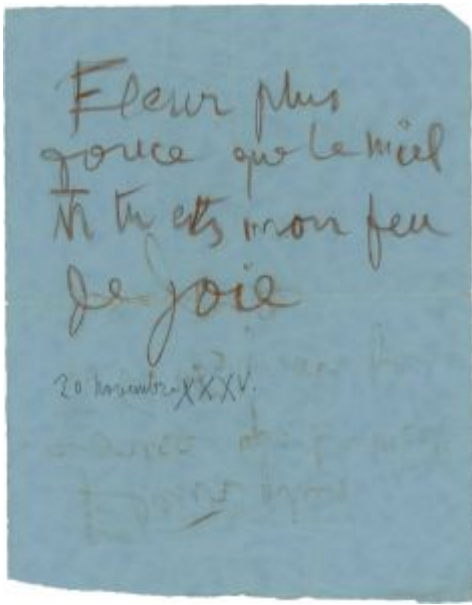 Fleur plus
douce que le miel
MT tu es mon feu
de joie
20 novembre XXXV.